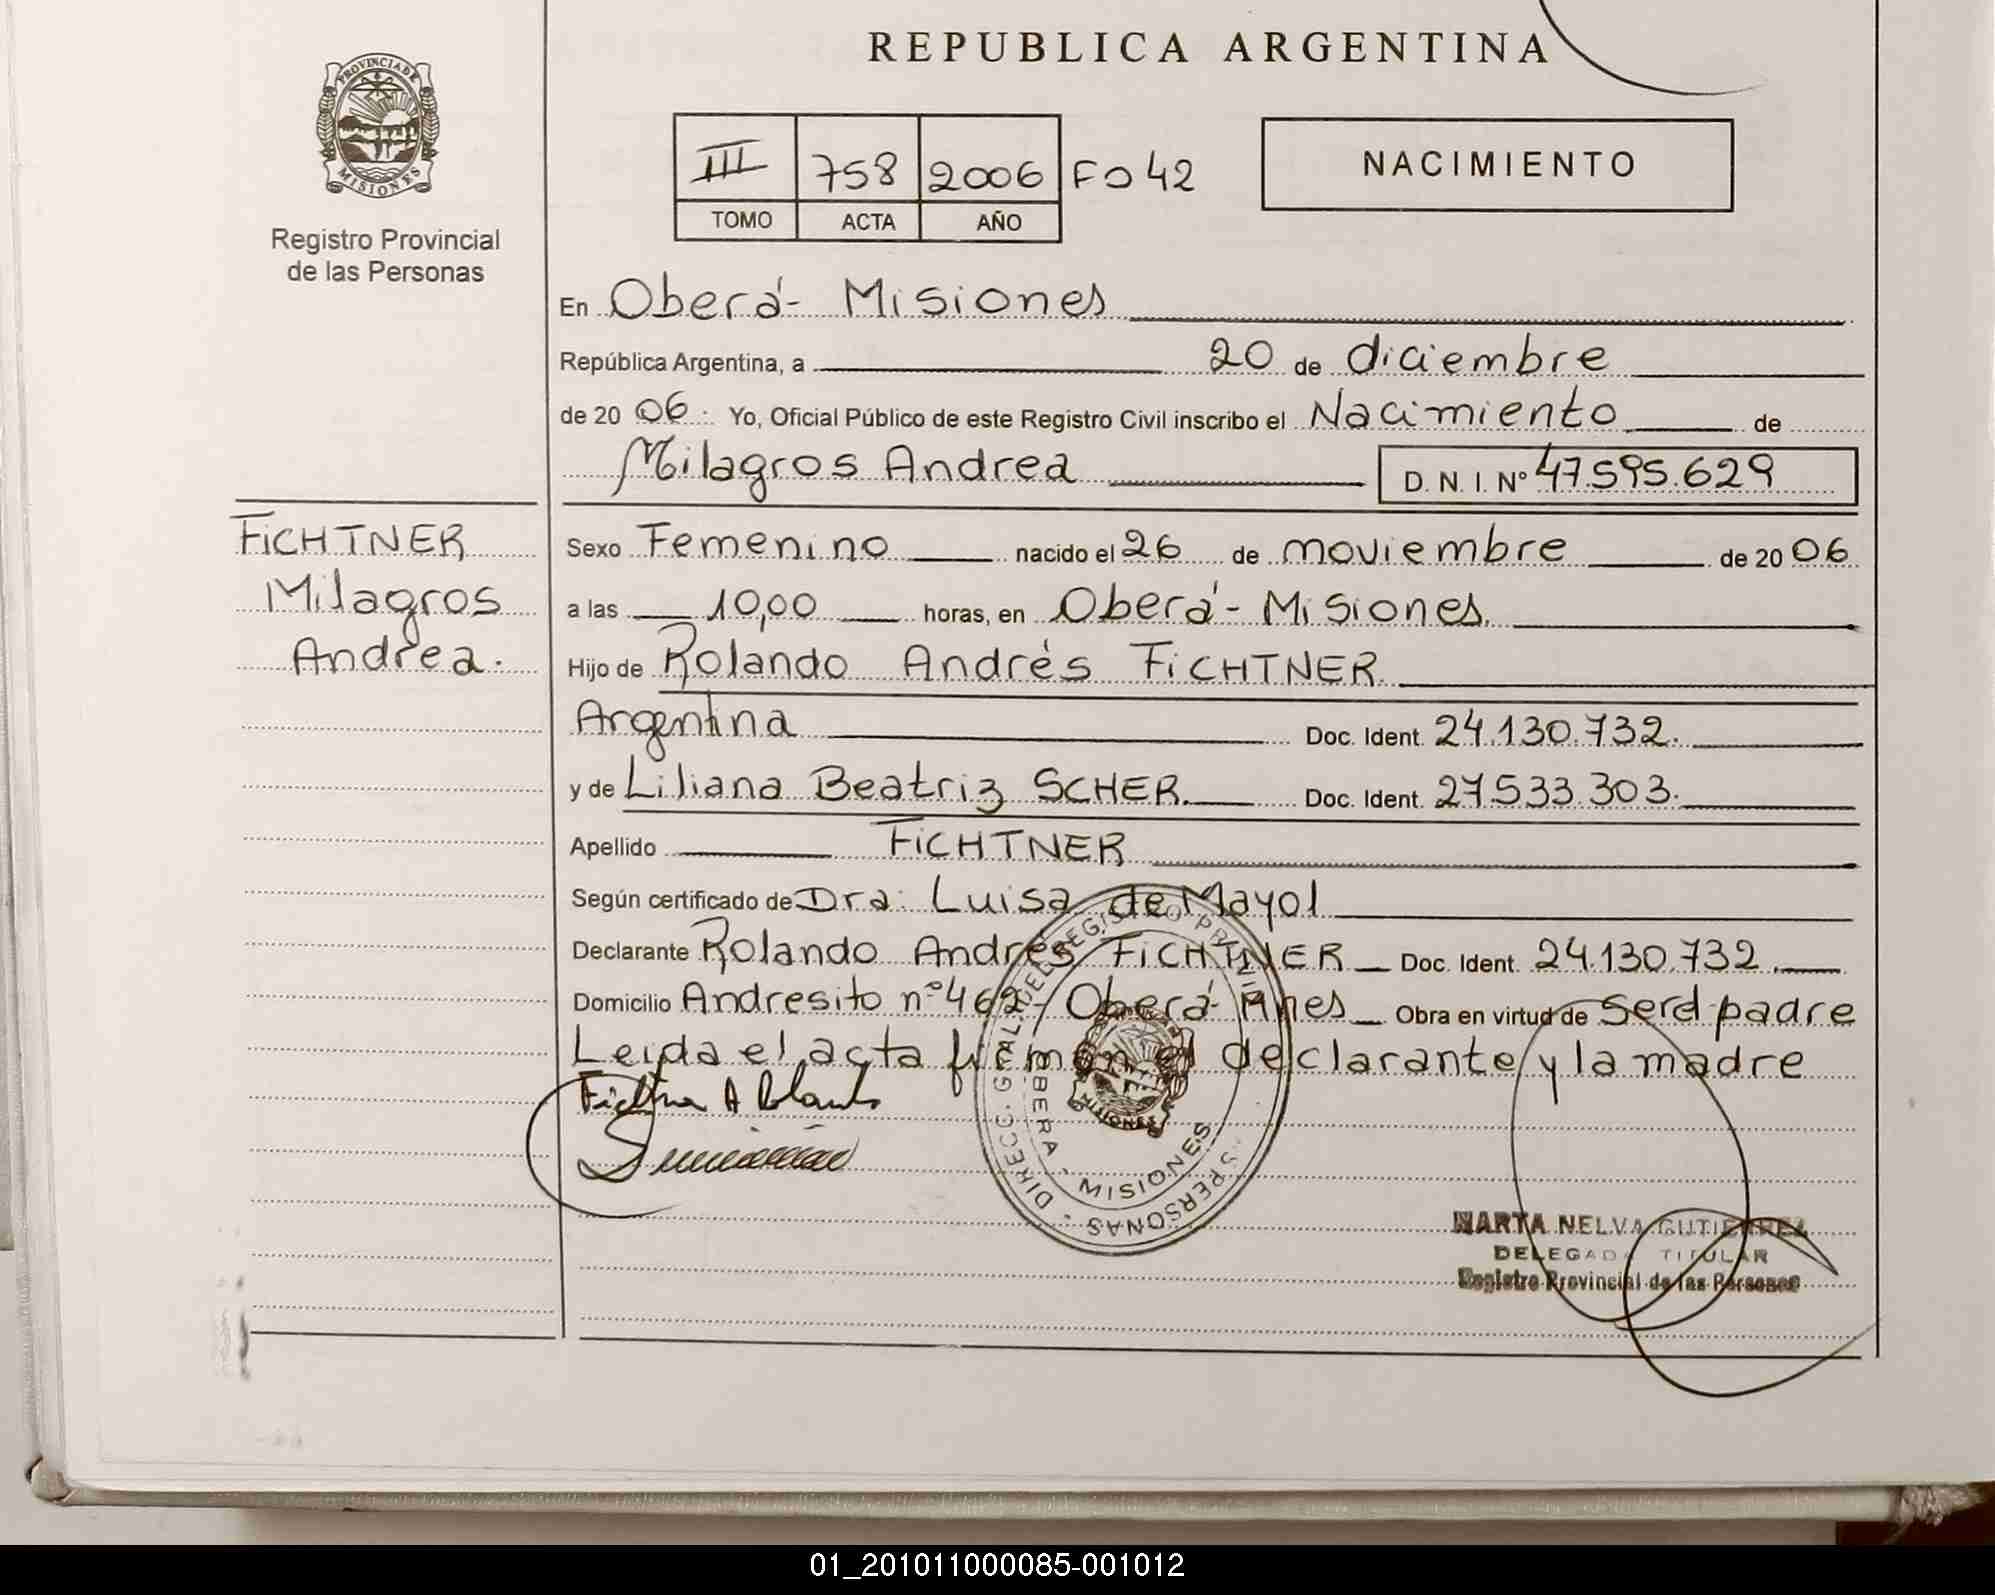 REPUBLICA ARGENTINA
PROVINCIA DE
MISIONES
Registro Provincial
de las Personas
III 758 2006 Fo 42
TOMO ACTA AÑO
NACIMIENTO
En Oberá - Misiones
República Argentina, a 20 de diciembre
de 20 06. Yo, Oficial Público de este Registro Civil inscribo el Nacimiento de
Milagros Andrea D. N. I. Nº 47.595.629
FiCHTNER
Milagros
Andrea.
Sexo Femenino nacido el 26 de noviembre de 20 06
a las 10,00 horas, en Oberá - Misiones.
Hijo de Rolando Andrés FiCHTNER
Argentina Doc. Ident. 24.130.732.
y de Liliana Beatriz SCHER. Doc. Ident. 27.533.303.
Apellido FiCHTNER
Según certificado de Dra: Luisa de Mayol
Declarante Rolando Andrés FiCHTNER Doc. Ident. 24.130.732.
Domicilio Andresito nº 462 - Oberá - Mnes Obra en virtud de Ser el padre
Leída el acta firman el declarante y la madre
DIRECC. GRAL. DEL REGISTRO PERSONAS
OBERA - MISIONES
MISIONES
MARTA NELVA GUTIERREZ
DELEGADA TITULAR
Registro Provincial de las Personas
01_201011000085-001012